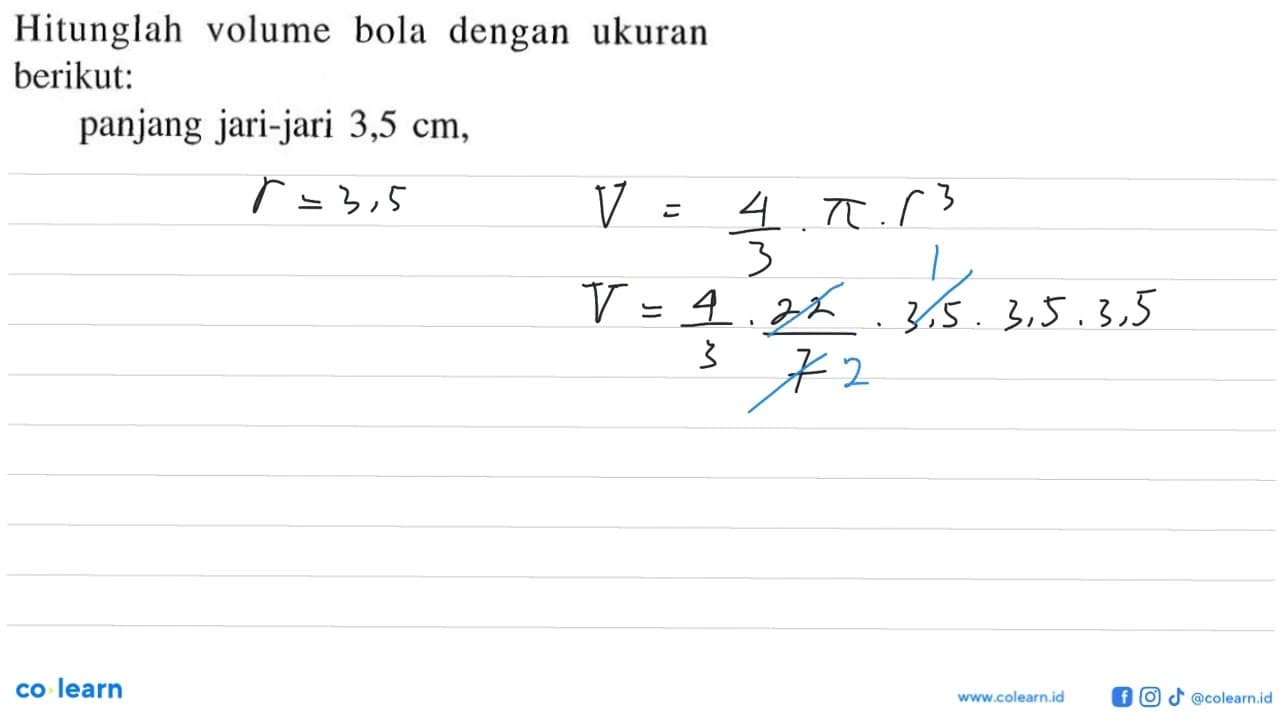 Hitunglah volume bola dengan ukuran
berikut:
panjang jari-jari 3,5 cm,
r = 3,5
V = 4/3 . π . r³
1
V = 4/3 . 22/7 . 3,5 . 3,5 . 3,5
2
co learn
www.colearn.id
@colearn.id